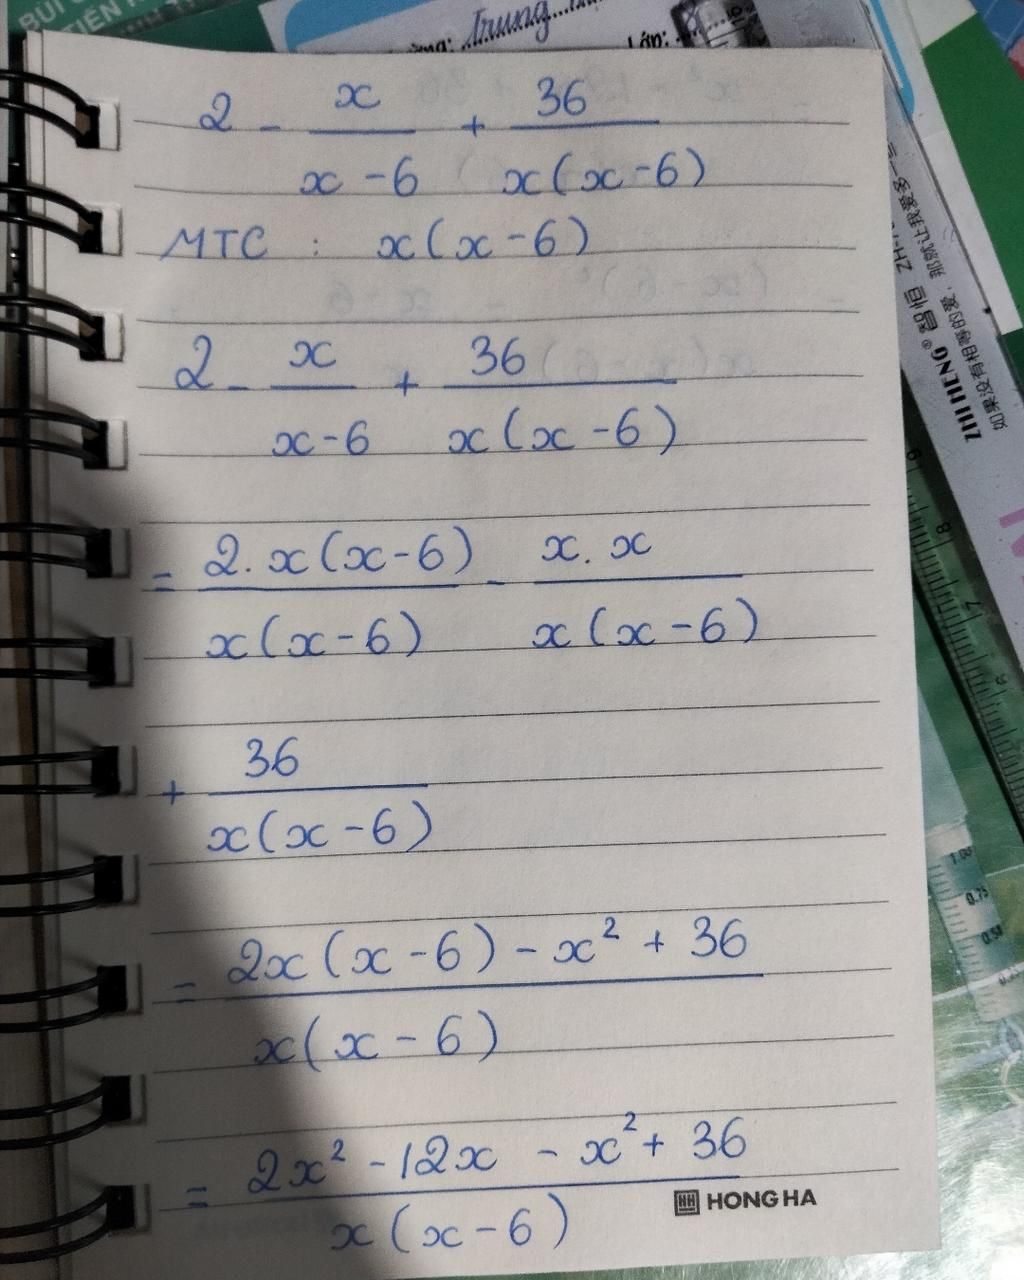 BÙI
TIẾN
Trung
Lớp:
2 - x/(x-6) + 36/(x(x-6))
MTC : x(x-6)
2 - x/(x-6) + 36/(x(x-6))
= 2.x(x-6)/(x(x-6)) - x.x/(x(x-6))
+ 36/(x(x-6))
= (2x(x-6) - x² + 36)/(x(x-6))
= (2x² - 12x - x² + 36)/(x(x-6))
HH HONG HA
ZHI HENG® 智恒
如果没有相等的爱,那就让我爱多一点
9
8
7
1.00
0.75
0.50